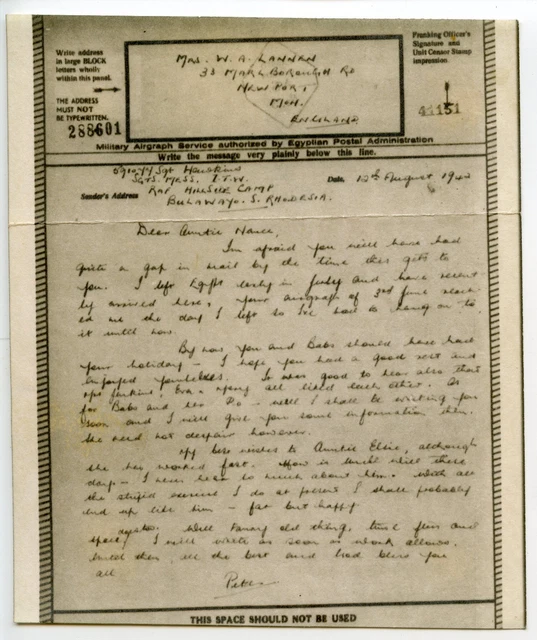 Write address
in large BLOCK
letters wholly
within this panel.
THE ADDRESS
MUST NOT
BE TYPEWRITTEN.
288601
MRS. W. A. LANNEN
33 MARLBOROUGH RD
NEWPORT
MON.
ENGLAND
Franking Officer's
Signature and
Unit Censor Stamp
impression.
41151
Military Airgraph Service authorized by Egyptian Postal Administration
Write the message very plainly below this line.
Sgt
SGTS. MESS. I.T.W.
Sender's Address
RAF HILLSIDE CAMP
BULAWAYO. S. RHODESIA.
Date. 12th August 194
Dear Auntie Nance,
I'm afraid you will have had
quite a gap in mail by the time this gets to
you. I left Egypt early in July and have recent
ly arrived here, your airgraph of 3rd June reach
ed me the day I left so I've had to hang on to
it until now.
By now you and Babs should have had
your holiday – I hope you had a good rest and
enjoyed yourselves. It was good to hear also that
all liked each other. As
for Babs and her – well I shall be writing you
soon and I will give you some information then.
She need not despair however.
My best wishes to Auntie Elsie, although
she has worked fast. How is these
days – I never hear so much about him. With all
the stupid I do at present I shall probably
end up like him – fat but happy
Well old thing, time flies and
space, I will write as soon as work allows.
Until then all the best and God bless you
all
Peter
THIS SPACE SHOULD NOT BE USED